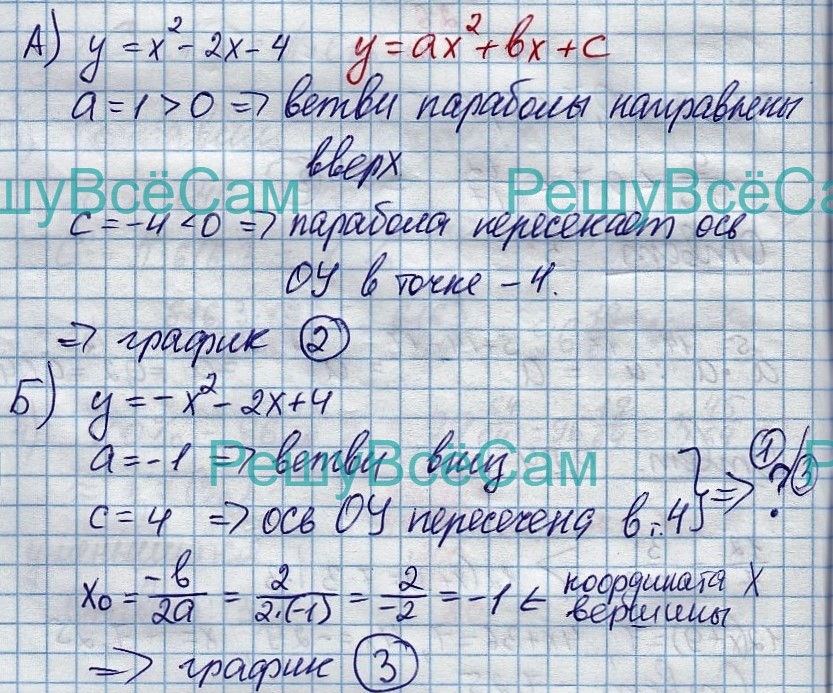 А) y = x² - 2x - 4 y = ax² + bx + c
a = 1 > 0 => ветви параболы направлены
вверх
РешуВсёСам РешуВсёСам
c = -4 < 0 => парабола пересекает ось
ОУ в точке -4.
=> график 2
Б) y = -x² - 2x + 4
a = -1 => ветви вниз } => 1/3 ?
РешуВсёСам
c = 4 => ось ОУ пересечена в т. 4
x₀ = -b/2a = 2/2·(-1) = 2/-2 = -1 ← координата X
вершины
=> график 3